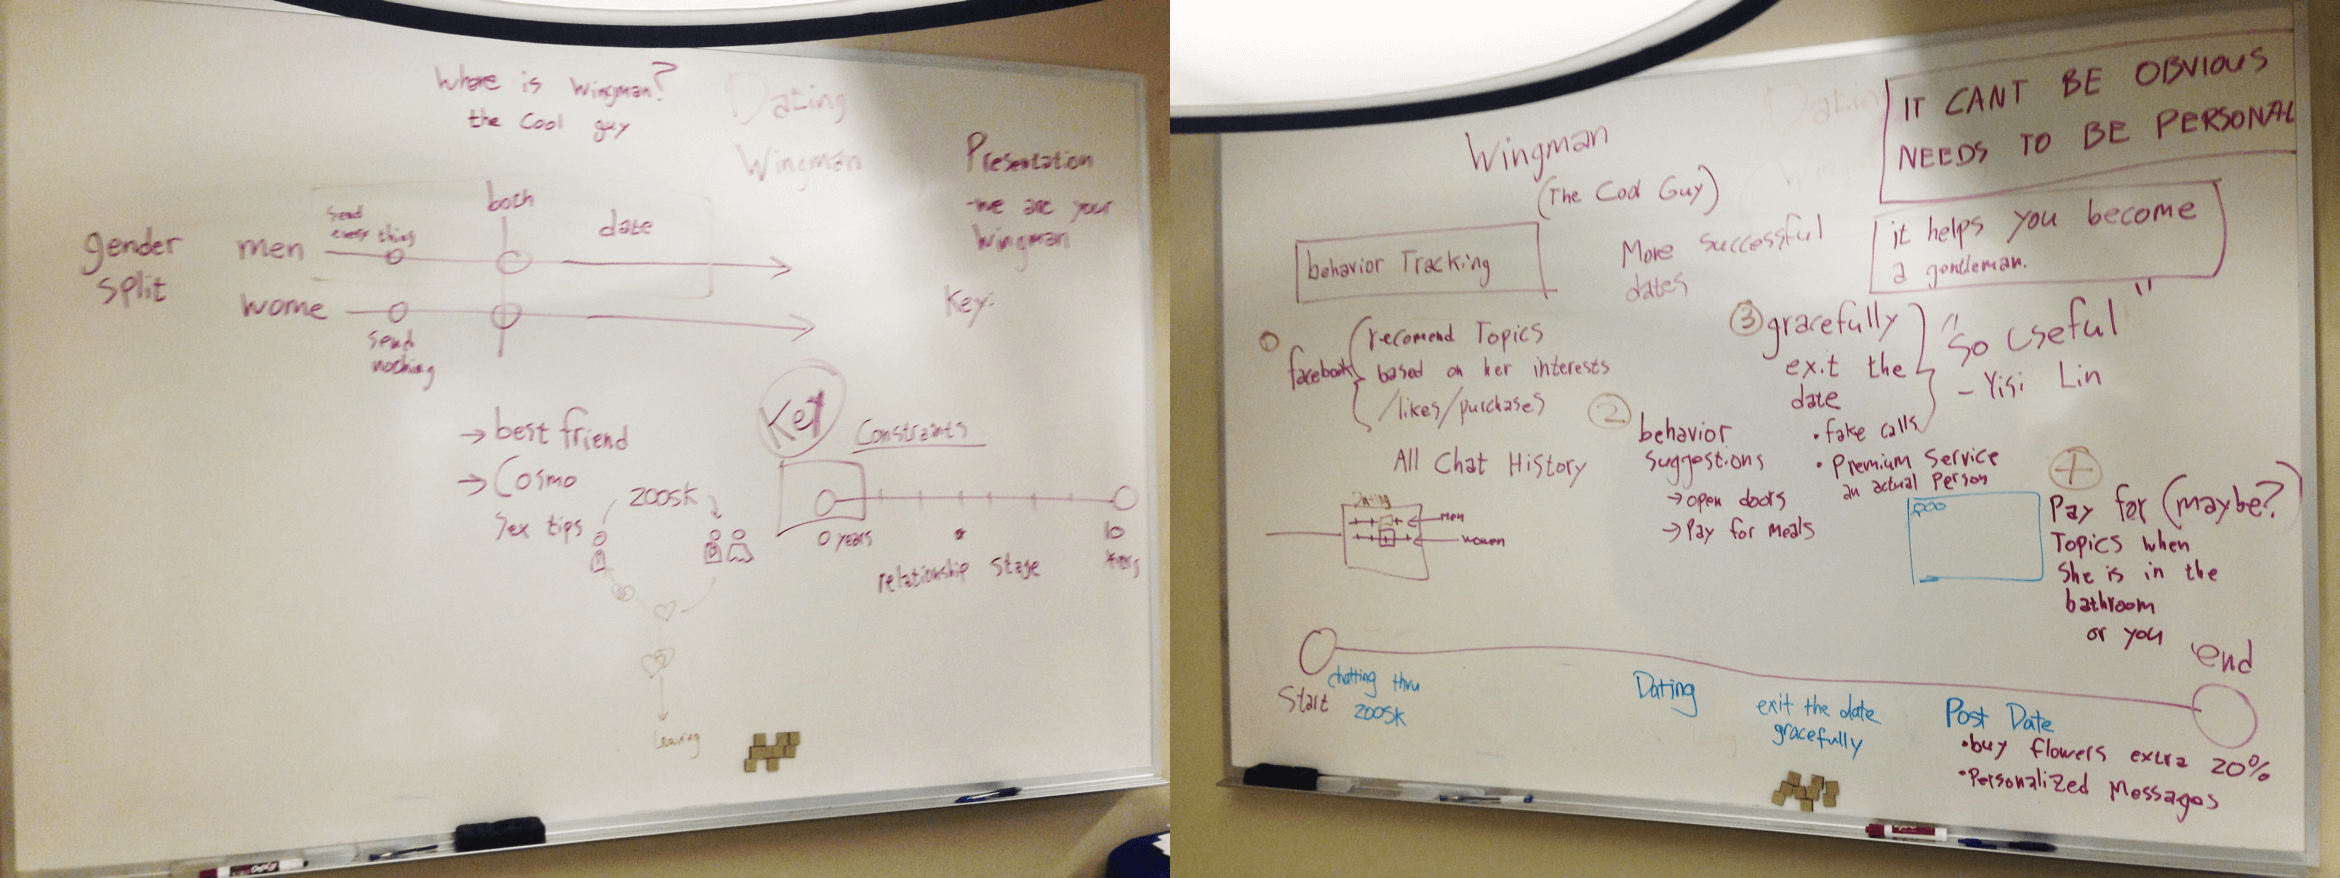 Where is Wingman?
the Cool guy
Dating
Wingman
Presentation
-we are your
Wingman
Key:
gender
split
men
send
every thing
both
date
wome
send
nothing
→ best friend
→ Cosmo
Sex tips
ZOOSK
Leaving
Key
Constraints
0 years
10
years
relationship stage
Dating
Wingman
(The Cool Guy)
IT CANT BE OBVIOUS
NEEDS TO BE PERSONAL
it helps you become
a gentleman.
behavior Tracking
More successful
dates
facebook
recomend Topics
based on her interests
/likes/purchases
All Chat History
Dating
Men
Women
2
behavior
suggestions
→ open doors
→ Pay for Meals
3 gracefully
exit the
date
• fake calls
• Premium Service
an actual Person
"So Useful"
- Yisi Lin
Pay for (maybe?)
Topics when
she is in the
bathroom
or you
Start
chatting thru
ZOOSK
Dating
exit the date
gracefully
Post Date
• buy flowers extra 20%
• Personalized Messages
end